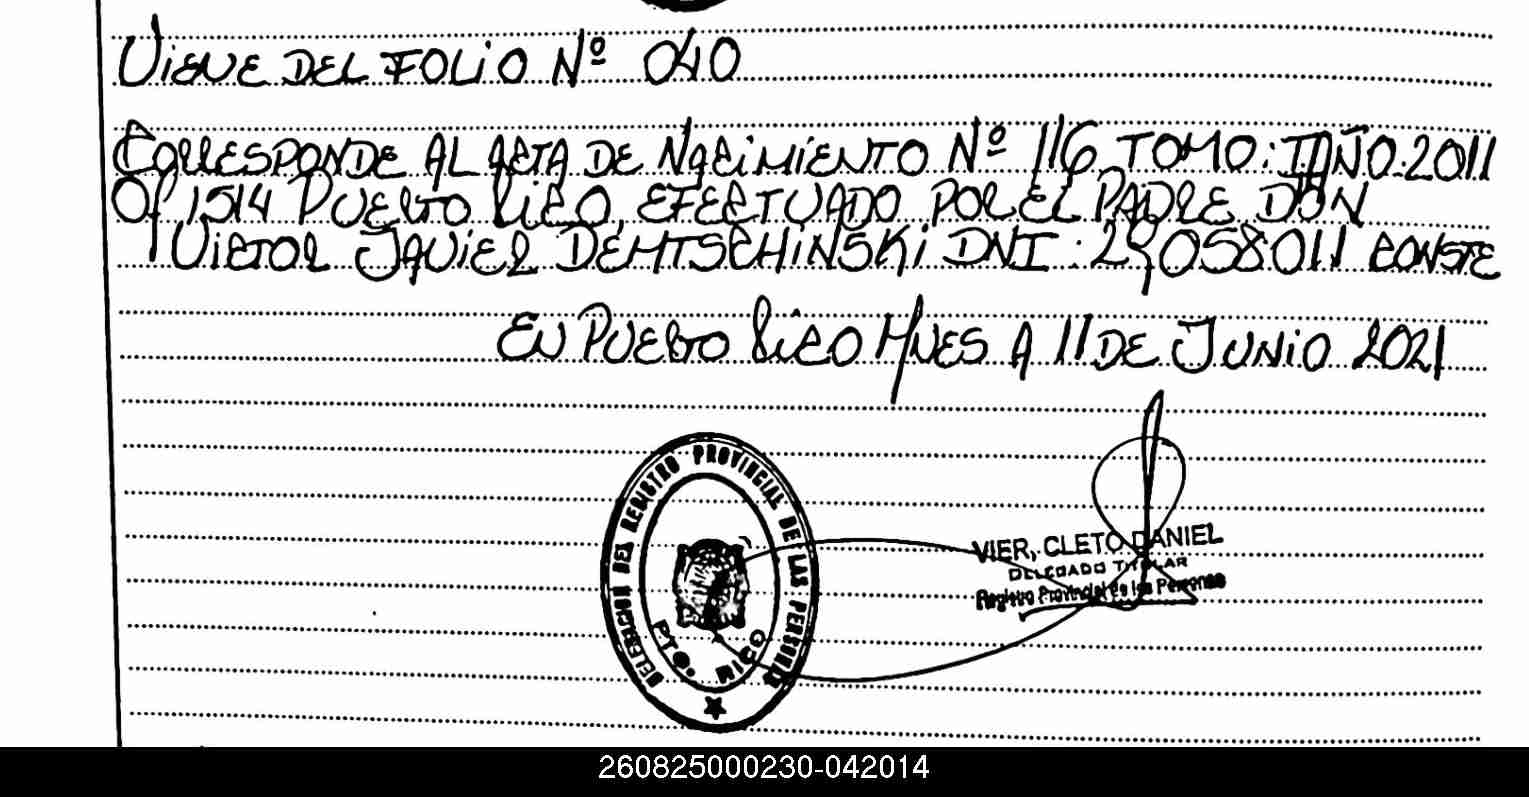 Viene del Folio Nº 040
Corresponde al Acta de Nacimiento Nº 116 Tomo: I Año: 2011
Of 1514 Puerto Rico, efectuado por el Padre Don
Victor Javier Demtschinski DNI: 29058011 Conste
En Puerto Rico Mnes a 11 de Junio 2021
DELEGACION DEL REGISTRO PROVINCIAL DE LAS PERSONAS
PTO. RICO
VIER, CLETO DANIEL
DELEGADO TITULAR
Registro Provincial de las Personas
260825000230-042014